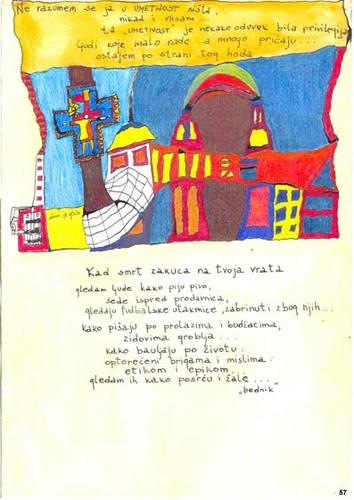 Ne razumem se ja u UMETNOST ništa,
nikad i nisam...
Ta „UMETNOST" je nekako oduvek bila privilegija
ljudi koje malo rade a mnogo pričaju...
ostajem po strani tog hoda
Kad smrt zakuca na tvoja vrata
gledam ljude kako piju pivo,
sede ispred prodavnica,
gledaju fudbalske utakmice, zabrinuti zbog njih...
kako pišaju po prolazima i budžacima,
zidovima groblja...
kako bauljaju po životu:
opterećeni brigama i mislima:
etikom i epikom...
gledam ih kako posrću i žale...
„bednik"
57